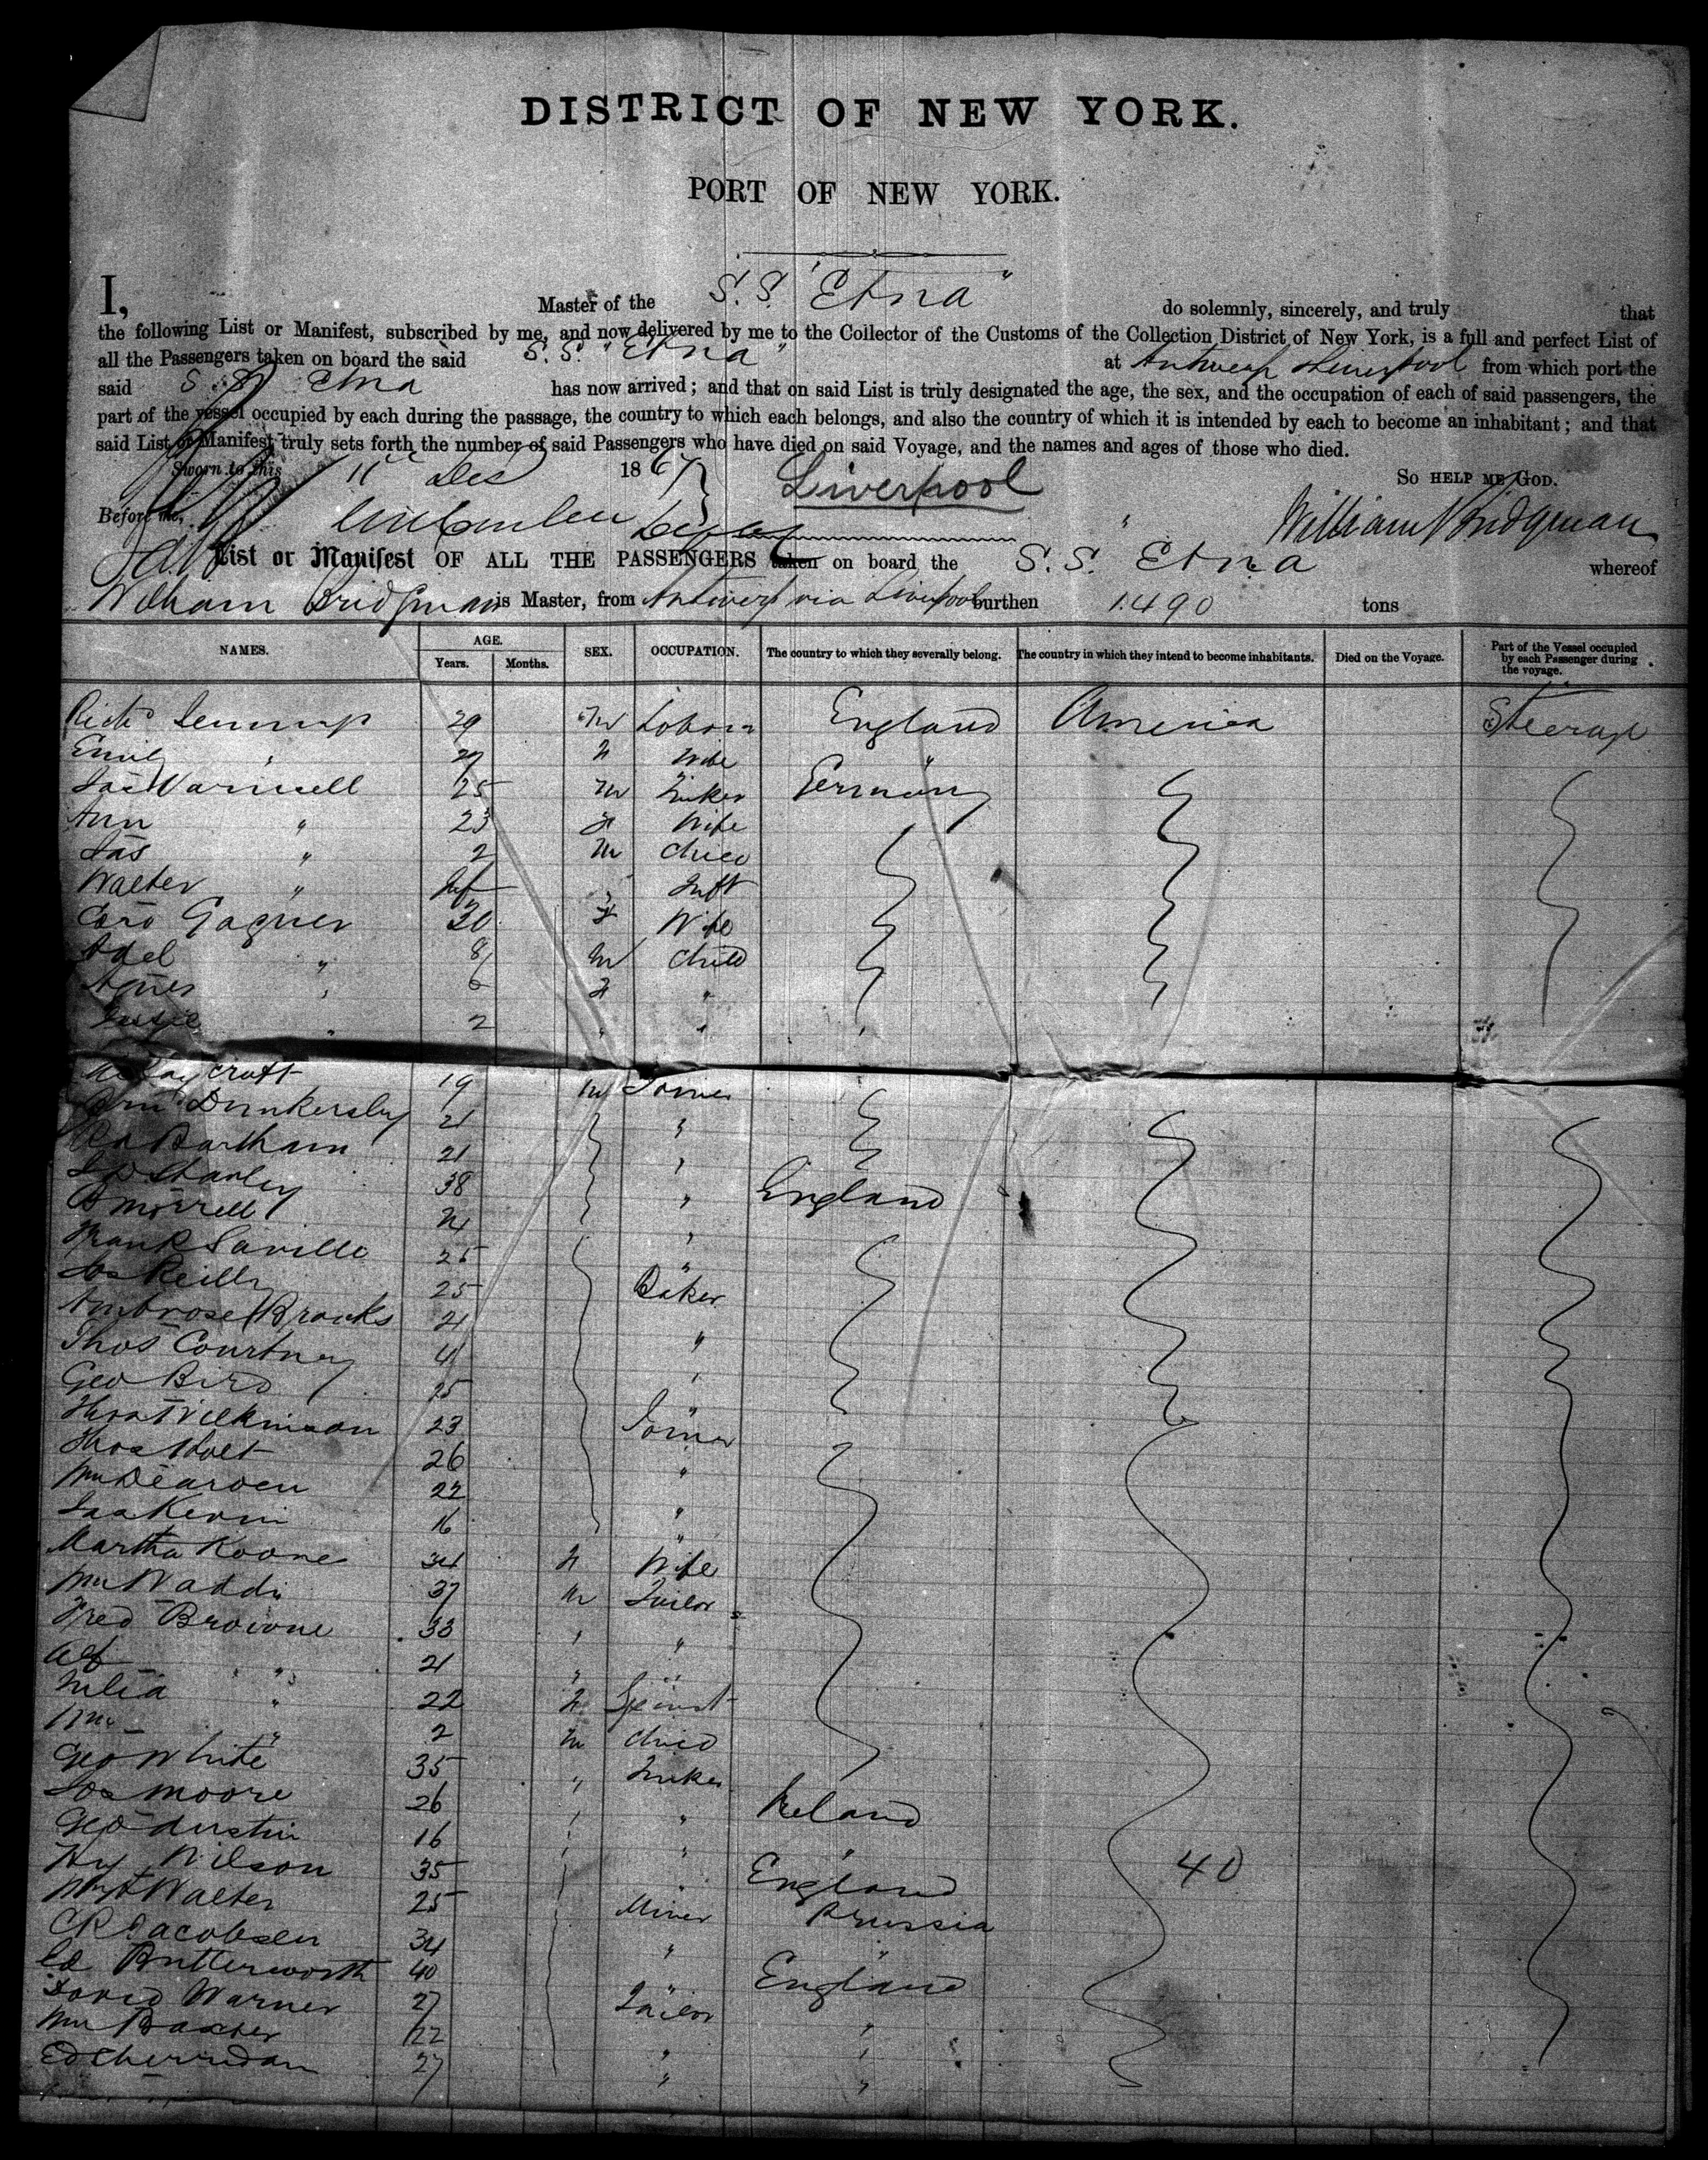 DISTRICT OF NEW YORK.
PORT OF NEW YORK.
I, Master of the S.S. "Etna" do solemnly, sincerely, and truly that
the following List or Manifest, subscribed by me, and now delivered by me to the Collector of the Customs of the Collection District of New York, is a full and perfect List of
all the Passengers taken on board the said S.S. "Etna" at Antwerp & Liverpool from which port the
said S.S. Etna has now arrived; and that on said List is truly designated the age, the sex, and the occupation of each of said passengers, the
part of the vessel occupied by each during the passage, the country to which each belongs, and also the country of which it is intended by each to become an inhabitant; and that
said List or Manifest truly sets forth the number of said Passengers who have died on said Voyage, and the names and ages of those who died.
Sworn to this 11 Dec 1867 Liverpool So HELP ME GOD.
Before me, William Bridgman
List or Manifest OF ALL THE PASSENGERS taken on board the S.S. Etna whereof
William Bridgman is Master, from Antwerp via Liverpool burthen 1490 tons
NAMES. AGE. Years. Months. SEX. OCCUPATION. The country to which they severally belong. The country in which they intend to become inhabitants. Died on the Voyage. Part of the Vessel occupied by each Passenger during the voyage.
29 M England America Steerage
" 27 F Wife "
25 M Germany
Ann " 23 F Wife
Jas " 2 M Child
Walter " Inf Inft
Gagner 30 F Wife
Adel " 8 M Child
Agnes " 6 F "
" 2 " " "
19 M
Dunkersley 21 "
Bartham 21 "
Stanley 38 " England
Morrell 21 "
Frank Saville 25 "
Jas Reilly 25 Baker
Ambrose Brooks 21 "
Thos Courtney 41 "
Geo Bird 25 "
Thos Wilkinson 23
Thos Holt 26 "
Wm Dearden 22 "
Jas Kevin 16 "
Martha Koone 34 F Wife
Wm Waddi 37 M Tailor
Fred Browne 33 " "
Alf " 21 " "
Julia " 22 F Spinst
Wm " 2 M Child
Geo White 35 "
Jos Moore 26 " " Ireland
Geo Austin 16 " " "
Hy Wilson 35 " England 40
Walter 25 Miner Prussia
C R Jacobsen 34 " "
Ed Butterworth 40 England
David Warner 27 Tailor "
Wm Baxter 22 " "
Ed Cherridan 27 " "